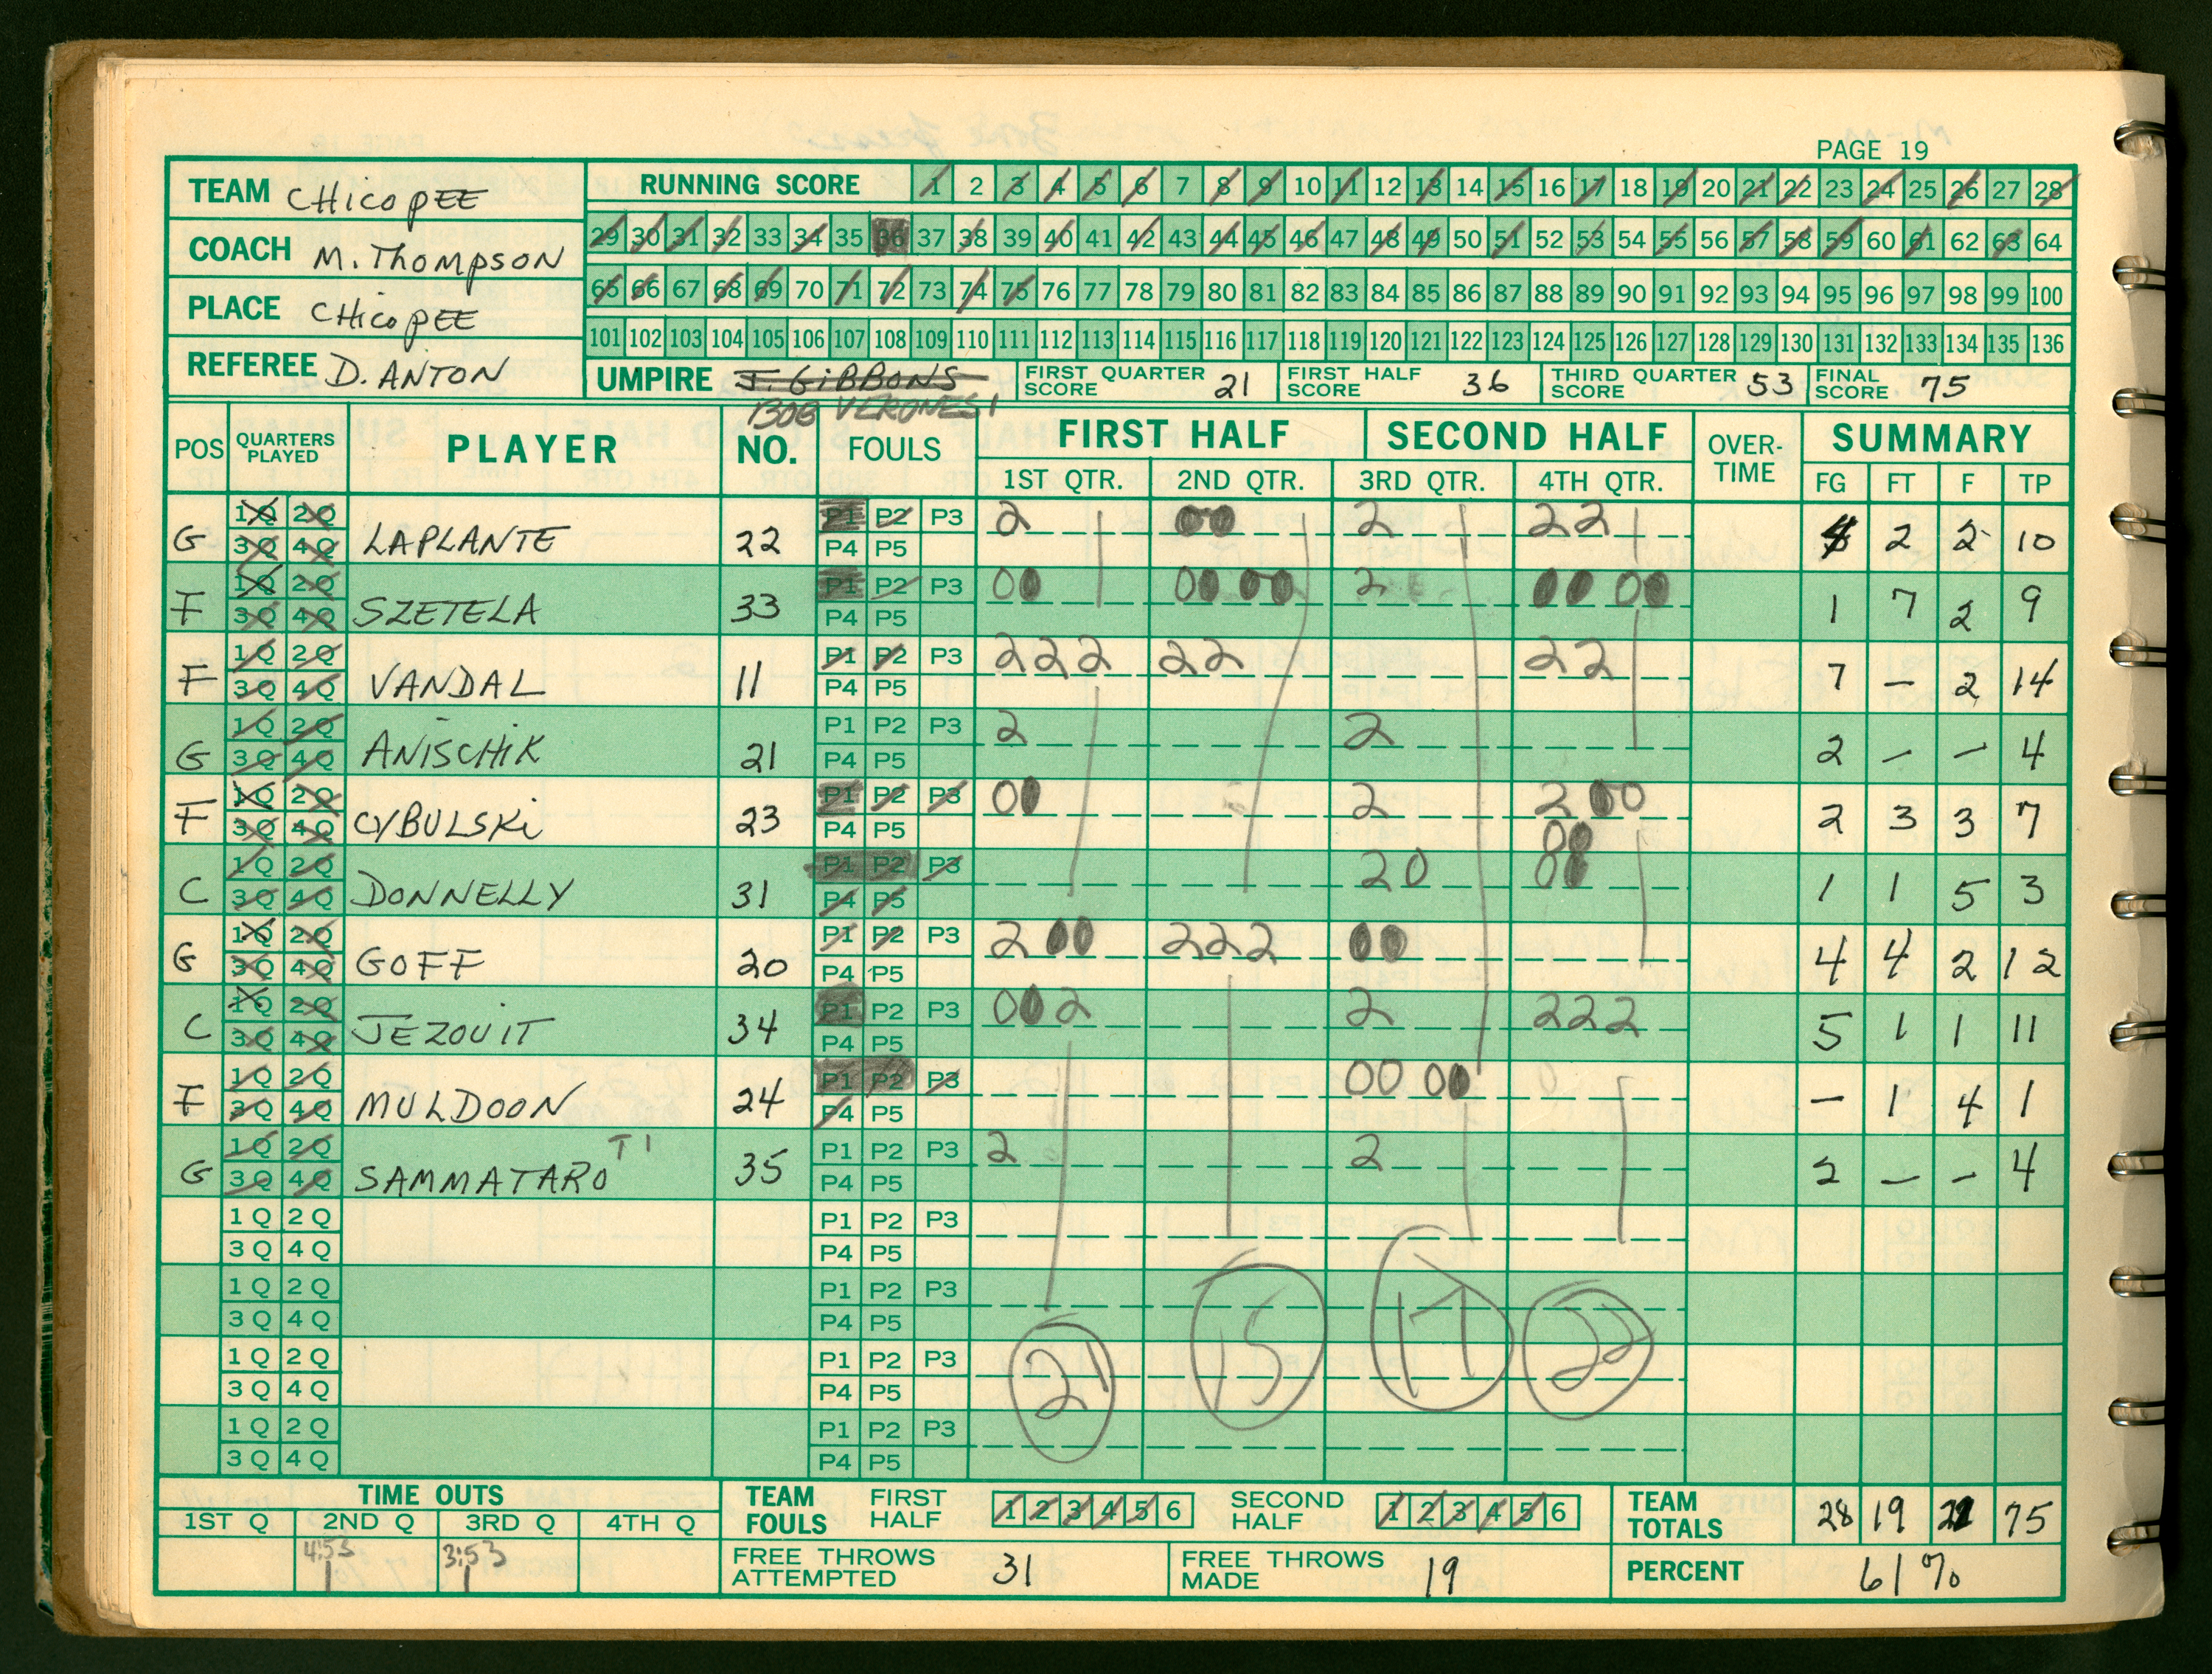 PAGE 19
TEAM CHICOPEE
COACH M. THOMPSON
PLACE CHICOPEE
REFEREE D. ANTON
RUNNING SCORE 1 2 3 4 5 6 7 8 9 10 11 12 13 14 15 16 17 18 19 20 21 22 23 24 25 26 27 28
29 30 31 32 33 34 35 36 37 38 39 40 41 42 43 44 45 46 47 48 49 50 51 52 53 54 55 56 57 58 59 60 61 62 63 64
65 66 67 68 69 70 71 72 73 74 75 76 77 78 79 80 81 82 83 84 85 86 87 88 89 90 91 92 93 94 95 96 97 98 99 100
101 102 103 104 105 106 107 108 109 110 111 112 113 114 115 116 117 118 119 120 121 122 123 124 125 126 127 128 129 130 131 132 133 134 135 136
UMPIRE J. GIBBONS FIRST QUARTER SCORE 21 FIRST HALF SCORE 36 THIRD QUARTER SCORE 53 FINAL SCORE 75
BOB VERONESI
POS QUARTERS PLAYED PLAYER NO. FOULS FIRST HALF SECOND HALF OVER-TIME SUMMARY
1ST QTR. 2ND QTR. 3RD QTR. 4TH QTR. FG FT F TP
G 1Q 2Q 3Q 4Q LAPLANTE 22 P1 P2 P3 P4 P5 2 00 2 22 4 2 2 10
F 1Q 2Q 3Q 4Q SZETELA 33 P1 P2 P3 P4 P5 00 00 00 2 00 00 1 7 2 9
F 1Q 2Q 3Q 4Q VANDAL 11 P1 P2 P3 P4 P5 222 22 22 7 — 2 14
G 1Q 2Q 3Q 4Q ANISCHIK 21 P1 P2 P3 P4 P5 2 2 2 — — 4
F 1Q 2Q 3Q 4Q CYBULSKI 23 P1 P2 P3 P4 P5 00 2 2 00 00 2 3 3 7
C 1Q 2Q 3Q 4Q DONNELLY 31 P1 P2 P3 P4 P5 20 00 1 1 5 3
G 1Q 2Q 3Q 4Q GOFF 20 P1 P2 P3 P4 P5 2 00 222 00 4 4 2 12
C 1Q 2Q 3Q 4Q JEZOUIT 34 P1 P2 P3 P4 P5 00 2 2 222 5 1 1 11
F 1Q 2Q 3Q 4Q MULDOON 24 P1 P2 P3 P4 P5 00 00 — 1 4 1
G 1Q 2Q 3Q 4Q SAMMATARO T1 35 P1 P2 P3 P4 P5 2 2 2 — — 4
1Q 2Q P1 P2 P3
3Q 4Q P4 P5
1Q 2Q P1 P2 P3
3Q 4Q P4 P5
1Q 2Q P1 P2 P3
3Q 4Q P4 P5
1Q 2Q P1 P2 P3
3Q 4Q P4 P5
21 15 17 22
TIME OUTS
1ST Q 2ND Q 3RD Q 4TH Q
4:53 1 3:53 1
TEAM FOULS FIRST HALF 1 2 3 4 5 6 SECOND HALF 1 2 3 4 5 6
FREE THROWS ATTEMPTED 31 FREE THROWS MADE 19
TEAM TOTALS 28 19 21 75
PERCENT 61%